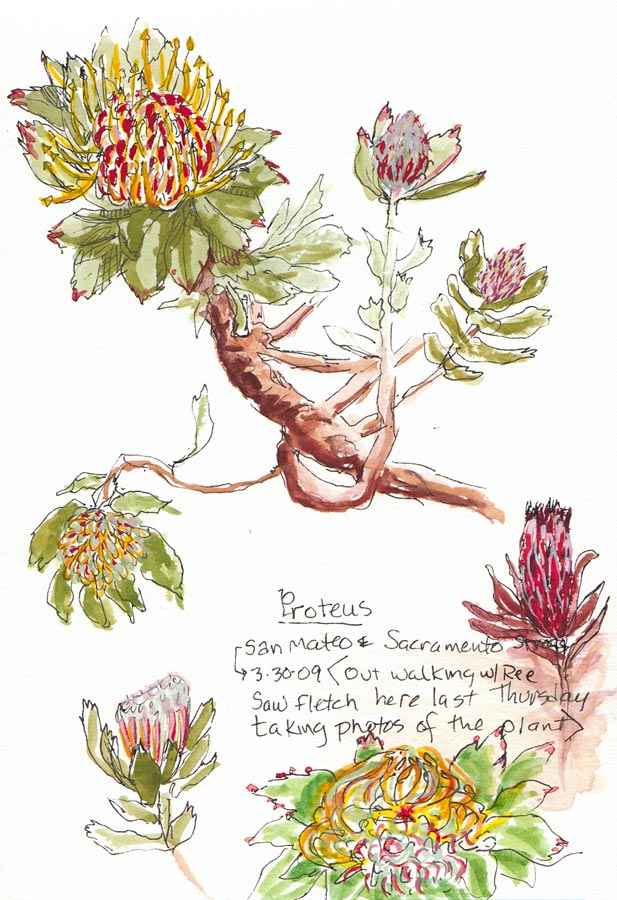 Proteus
San Mateo & Sacramento Streets
3·30·09 (Out walking w/ Ree
Saw Fletch here last Thursday
taking photos of the plant)